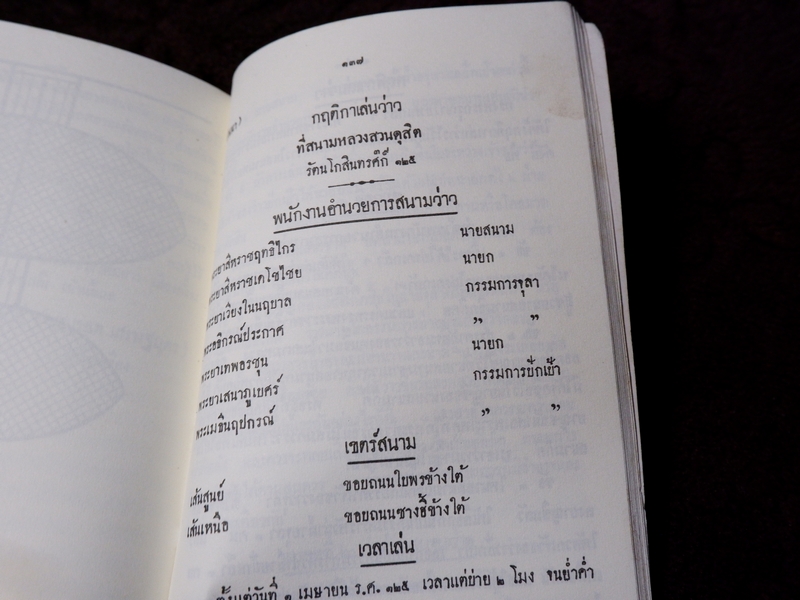 ๑๓๗
กฤติกาเล่นว่าว
ที่สนามหลวงสวนดุสิต
รัตนโกสินทรศ๊ก์ ๑๒๕
พนักงานอำนวยการสนามว่าว
พระยาสีหราชฤทธิไกร นายสนาม
พระยาสีหราชเดโชไชย นายก
พระยาเวียงในนฤบาล กรรมการจุลา
พระอธิกรณ์ประกาศ ,, ,,
พระยาเทพอรชุน นายก
พระยาเสนาภูเบศร์ กรรมการปักเป้า
พระเมธินฤปกรณ์ ,, ,,
เขตร์สนาม
เส้นสูนย์ ขอบถนนใบพรข้างใต้
เส้นเหนือ ขอบถนนซางฮี้ข้างใต้
เวลาเล่น
ตั้งแต่วันที่ ๑ เมษายน ร.ศ. ๑๒๕ เวลาแต่บ่าย ๒ โมง จนย่ำค่ำ